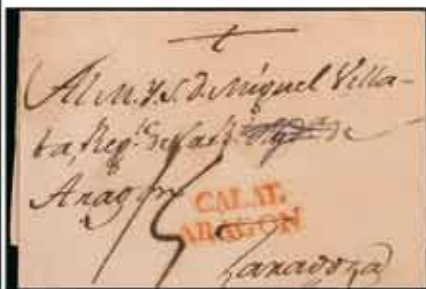 Al M. Y. S. D. Miguel Villa-
ba, Regte de la Rl Auda de
Aragon
15
CALAT.
ARAGON
Zaragoza